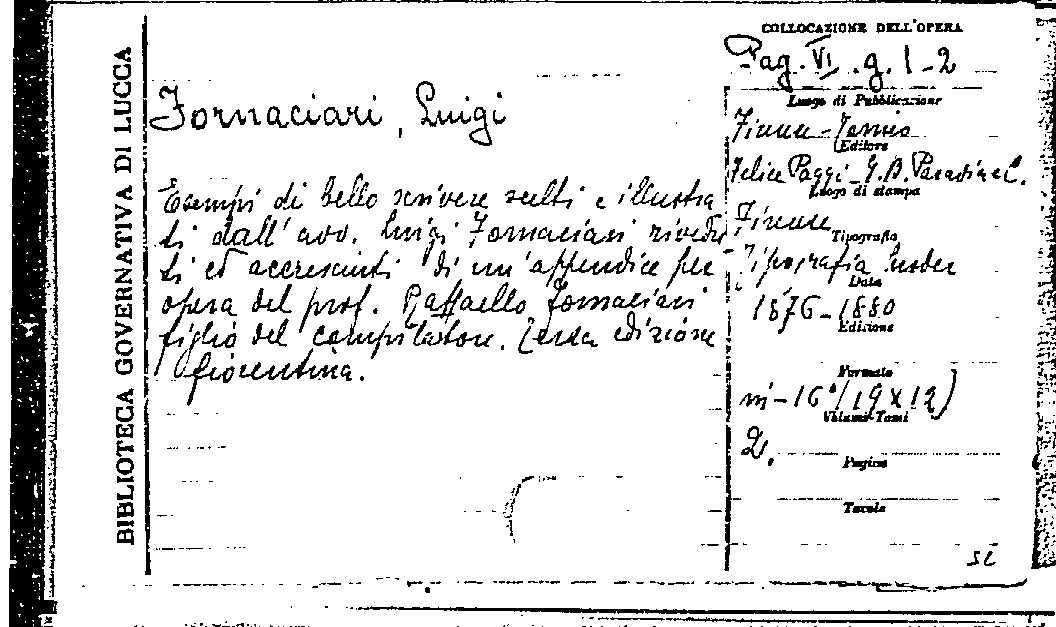 BIBLIOTECA GOVERNATIVA DI LUCCA
Fornaciari, Luigi
Esempi di bello scrivere scelti e illustra
ti dall' avv. Luigi Fornaciari rivedu
ti ed accresciuti di un'appendice per
opera del prof. Raffaello Fornaciari
figlio del compilatore. Terza edizione
fiorentina.
COLLOCAZIONE DELL'OPERA
Pag. VI. g. 1-2
Luogo di Pubblicazione
Firenze-
Editore
Felice Paggi-G.B. Paravia e C.
Luogo di stampa
Firenze
Tipografia
Tipografia
Data
1876-1880
Edizione
Formato
in-16°(19x12)
Volume-Tomi
2.
Pagine
Tavole